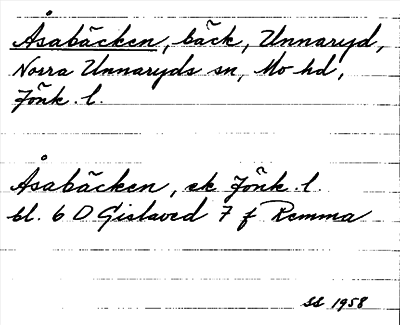 Åsabäcken, bäck, Unnaryd,
Norra Unnaryds sn, Mo hd,
Jönk. l.
Åsabäcken, ek Jönk. l.
bl. 6 D Gislaved 7 f Remma
SS 1958